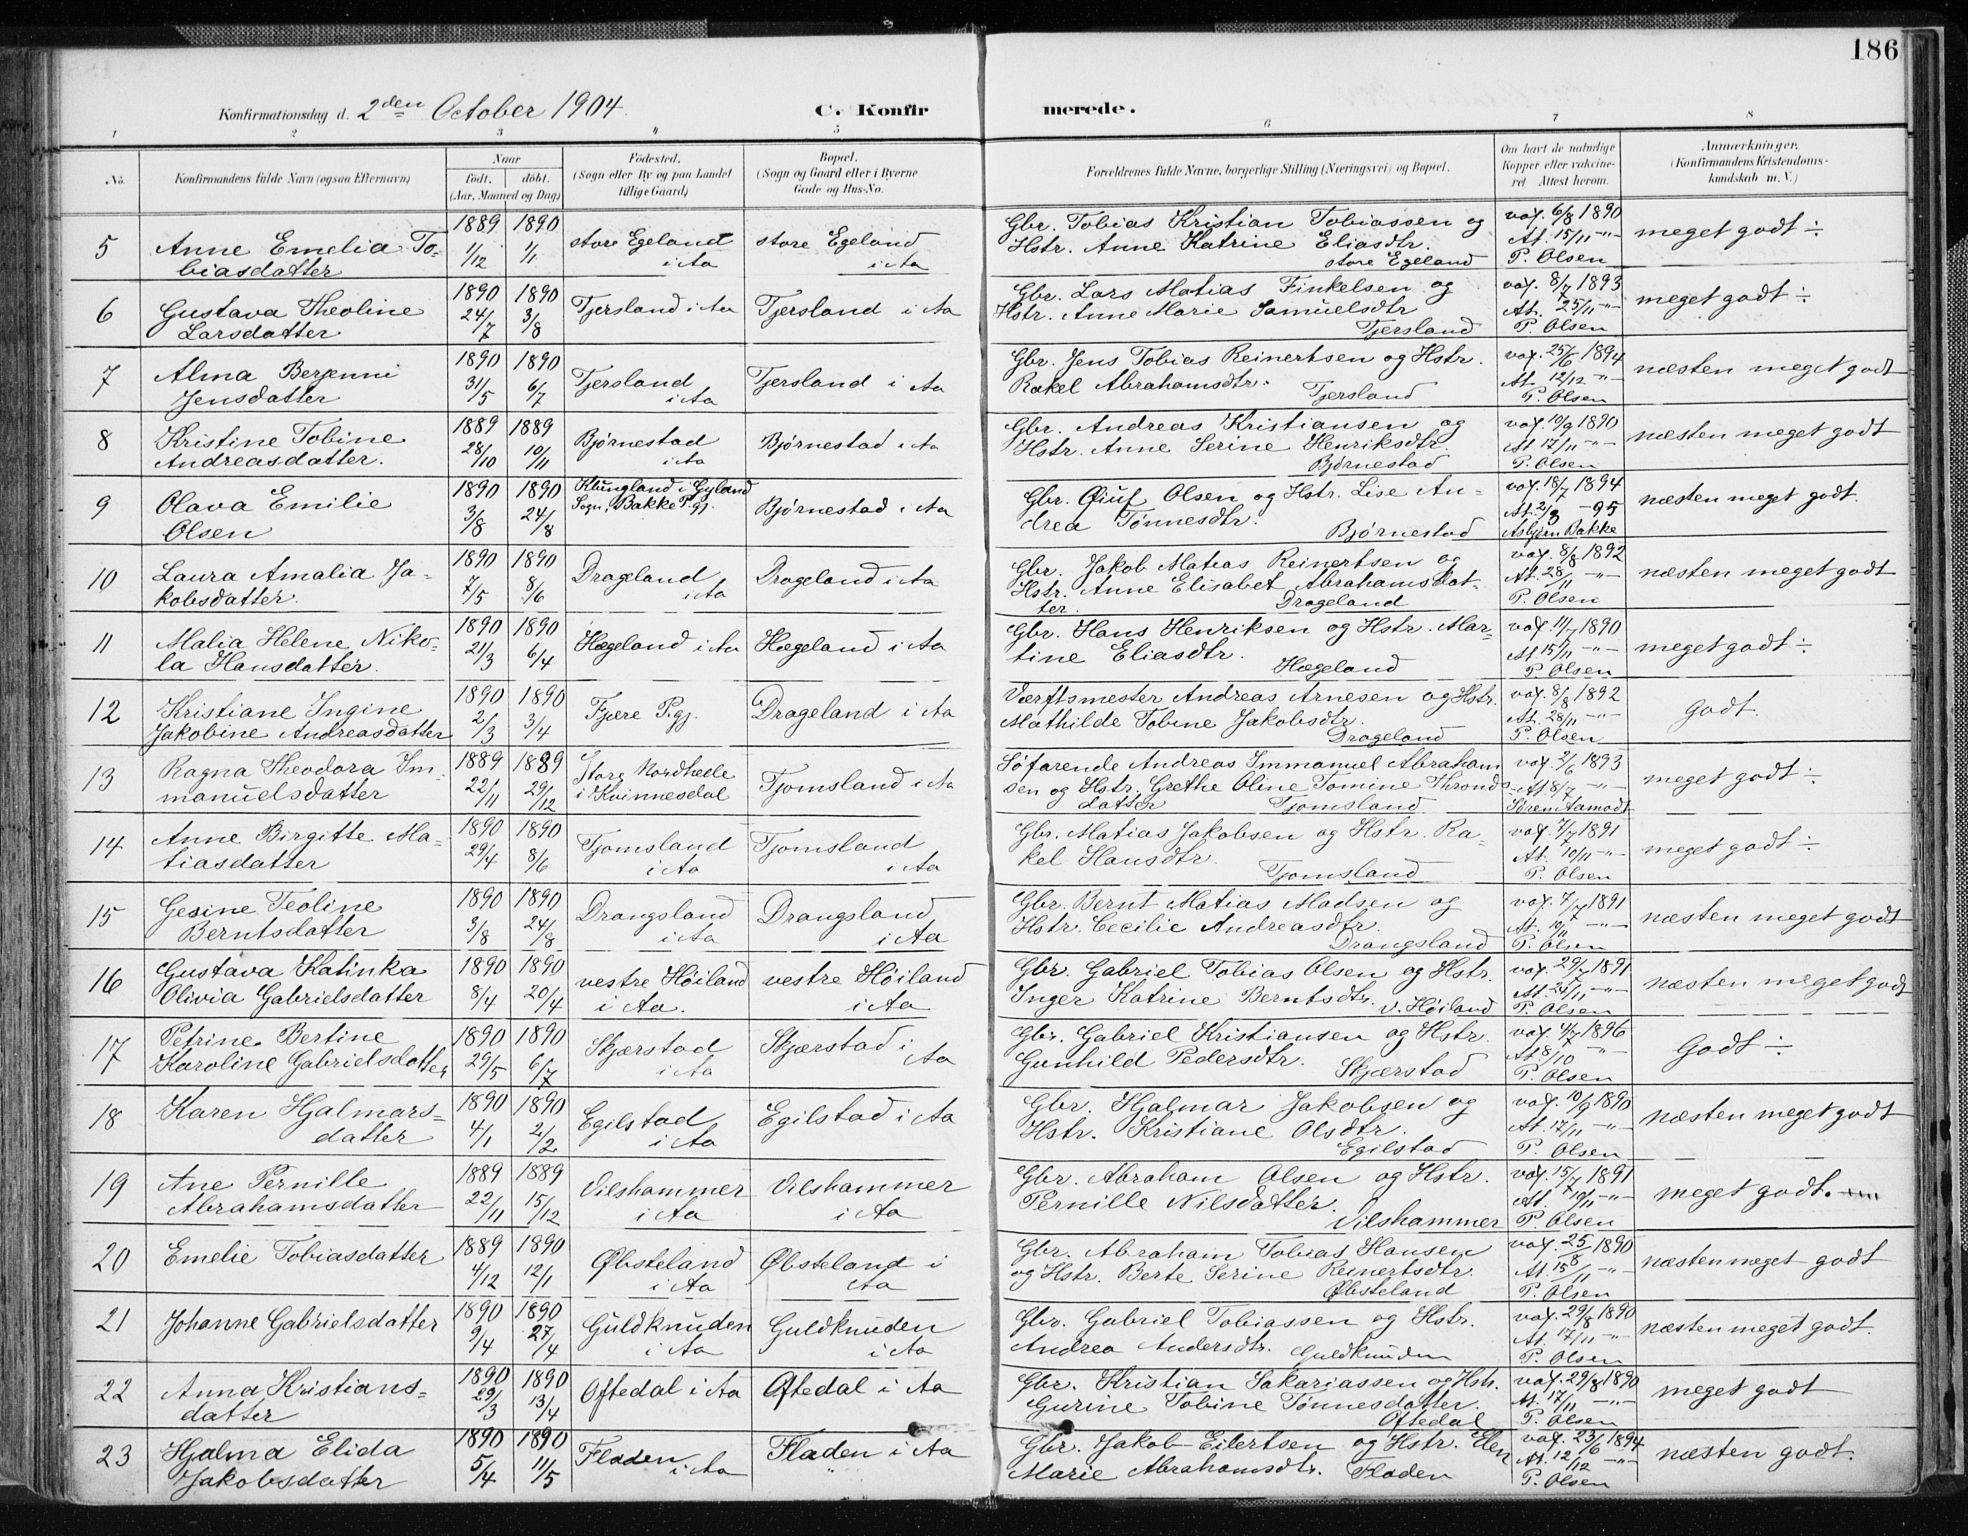 186
Konfirmationsdag d. 2den October 1904. C. Konfirmerede.
1 2 3 4 5 6 7 8
No. Konfirmandens fulde Navn (ogsaa Efternavn) Naar født. døbt. (Aar, Maaned og Dag) Fødested. (Sogn eller By og paa Landet tillige Gaard) Bopæl. (Sogn og Gaard eller i Byerne Gade og Hus-No. Forældrenes fulde Navne, borgerlige Stilling (Næringsvei) og Bopæl. Om havt de naturlige Kopper eller vakcineret. Attest herom. Anmærkninger. (Konfirmandens Kristendomskundskab m. V.)
5 Anne Emelia Tobiasdatter 1889 1/12 1890 1/1 store Egeland i Aa store Egeland i Aa Gbr. Tobias Kristian Tobiassen og Hstr. Anne Katrine Eliasdtr. store Egeland vax. 6/8 1890 At. 15/11 -"- P. Olsen meget godt ÷
6 Gustava Theoline Larsdatter 1890 24/7 1890 3/8 Tjersland i Aa Tjersland i Aa Gbr. Lars Matias Finkelsen og Hstr. Anne Marie Samuelsdtr Tjersland vax. 8/7 1893 At. 25/11 -"- P. Olsen meget godt ÷
7 Alma Berjenni Jensdatter 1890 31/5 1890 6/7 Tjersland i Aa Tjersland i Aa Gbr. Jens Tobias Reinertsen og Hstr. Rakel Abrahamsdtr. Tjersland vax. 25/6 1894 At. 12/12 -"- P. Olsen næsten meget godt
8 Kristine Tobine Andreasdatter. 1889 28/10 1889 10/11 Bjørnestad i Aa Bjørnestad i Aa Gbr. Andreas Kristiansen og Hstr. Anne Serine Henriksdtr. Bjørnestad vax. 19/9 1890 At 17/11 -"- P. Olsen næsten meget godt
9 Olava Emilie Olsen 1890 3/8 1890 24/8 Klungland i Gyland Sogn, Bakke P.gj. Bjørnestad i Aa Gbr. Olsen og Hstr. Lise Andrea Tønnesdtr. Bjørnestad vax. 18/7 1894 At 2/3 -95 Asbjørn Bakke næsten meget godt.
10 Laura Amalia Jakobsdatter. 1890 7/5 1890 8/6 Drageland i Aa Drageland i Aa Gbr. Jakob Matias Reinertsen og Hstr. Anne Elisabet Abrahamsdatter. Drageland vax. 8/8 1892 At. 28/11 -"- P. Olsen næsten meget godt
11 Malia Helene Nikola Hansdatter. 1890 21/3 1890 6/4 Hægeland i Aa Hægeland i Aa Gbr. Hans Henriksen og Hstr. Martine Eliasdtr. Hægeland vax. 11/7 1890 At. 15/11 -"- P. Olsen meget godt ÷
12 Kristiane Ingine Jakobine Andreasdatter 1890 2/3 1890 3/4 Fjære P.gj. Drageland i Aa Værftsmester Andreas Arnesen og Hstr. Mathilde Tobine Jakobsdtr. Drageland vax. 8/8 1892 At. 28/11 -"- P. Olsen Godt.
13 Ragna Theodora Immanuelsdatter 1889 22/11 1889 29/12 Store Nordhede i Kvinnesdal Tjomsland i Aa Søfarende Andreas Immanuel Abrahamsen og Hstr. Grethe Oline Tomine Throndsdatter Tjomsland vax. 2/6 1893 At 8/7 -"- Søren Aamodt meget godt ÷
14 Anne Birgitte Matiasdatter 1890 29/4 1890 8/6 Tjomsland i Aa Tjomsland i Aa Gbr. Matias Jakobsen og Hstr. Rakel Hansdtr. Tjomsland vax. 7/7 1891 At. 10/11 -"- P. Olsen meget godt ÷
15 Gesine Teoline Berntsdatter 1890 3/8 1890 24/8 Drangsland i Aa Drangsland i Aa Gbr. Bernt Matias Madsen og Hstr. Cecilie Andreasdtr. Drangsland vax. 7/7 1891 At. 10/11 -"- P. Olsen næsten meget godt
16 Gustava Katinka Olivia Gabrielsdatter 1890 8/4 1890 20/4 vestre Høiland i Aa. vestre Høiland i Aa Gbr. Gabriel Tobias Olsen og Hstr. Inger Katrine Berntsdtr. v. Høiland vax. 29/7 1891 At. 24/11 -"- P. Olsen næsten meget godt
17 Petrine Bertine Karoline Gabrielsdatter 1890 29/5 1890 6/7 Skjærstad i Aa Skjærstad i Aa Gbr. Gabriel Kristiansen og Hstr. Gunhild Pedersdtr. Skjærstad vax. 4/7 1896 At 8/10 -"- P. Olsen Godt ÷
18 Karen Hjalmarsdatter 1890 4/1 1890 2/2 Egilstad i Aa Egilstad i Aa Gbr. Hjalmar Jakobsen og Hstr. Kristiane Olsdtr. Egilstad vax. 10/9 1890 At. 17/11 -"- P. Olsen næsten meget godt
19 Ane Pernille Abrahamsdatter 1889 22/11 1889 15/12 Vilshammer i Aa Vilshammer i Aa Gbr. Abraham Olsen og Hstr. Pernille Nilsdatter. Vilshammer vax. 15/7 1891 At 10/11 -"- P. Olsen meget godt.
20 Emelie Tobiasdatter 1889 4/12 1890 12/1 Øbsteland i Aa Øbsteland i Aa Gbr. Abraham Tobias Hansen og Hstr. Berte Serine Reinertsdtr. Øbsteland vax. 25/8 1890 At 15/11 -"- P. Olsen næsten meget godt
21 Johanne Gabrielsdatter 1890 9/4 1890 27/4 Guldknuden i Aa Guldknuden i Aa Gbr. Gabriel Tobiassen og Hstr. Andrea Andersdtr. Guldknuden vax. 29/8 1890 At. 17/11 -"- P. Olsen næsten meget godt.
22 Anna Kristiansdatter 1890 29/3 1890 13/4 Oftedal i Aa Oftedal i Aa Gbr. Kristian Sakariassen og Hstr. Gurine Tobine Tønnesdatter. Oftedal vax. 29/8 1890 At. 17/11 -"- P. Olsen meget godt
23 Hjalma Elida Jakobsdatter 1890 5/4 1890 11/5 Fladen i Aa Fladen i Aa Gbr. Jakob Eilertsen og Hstr. Elen Marie Abrahamsdtr. Fladen vax. 23/6 1894 At. 12/12 -"- P. Olsen næsten godt.